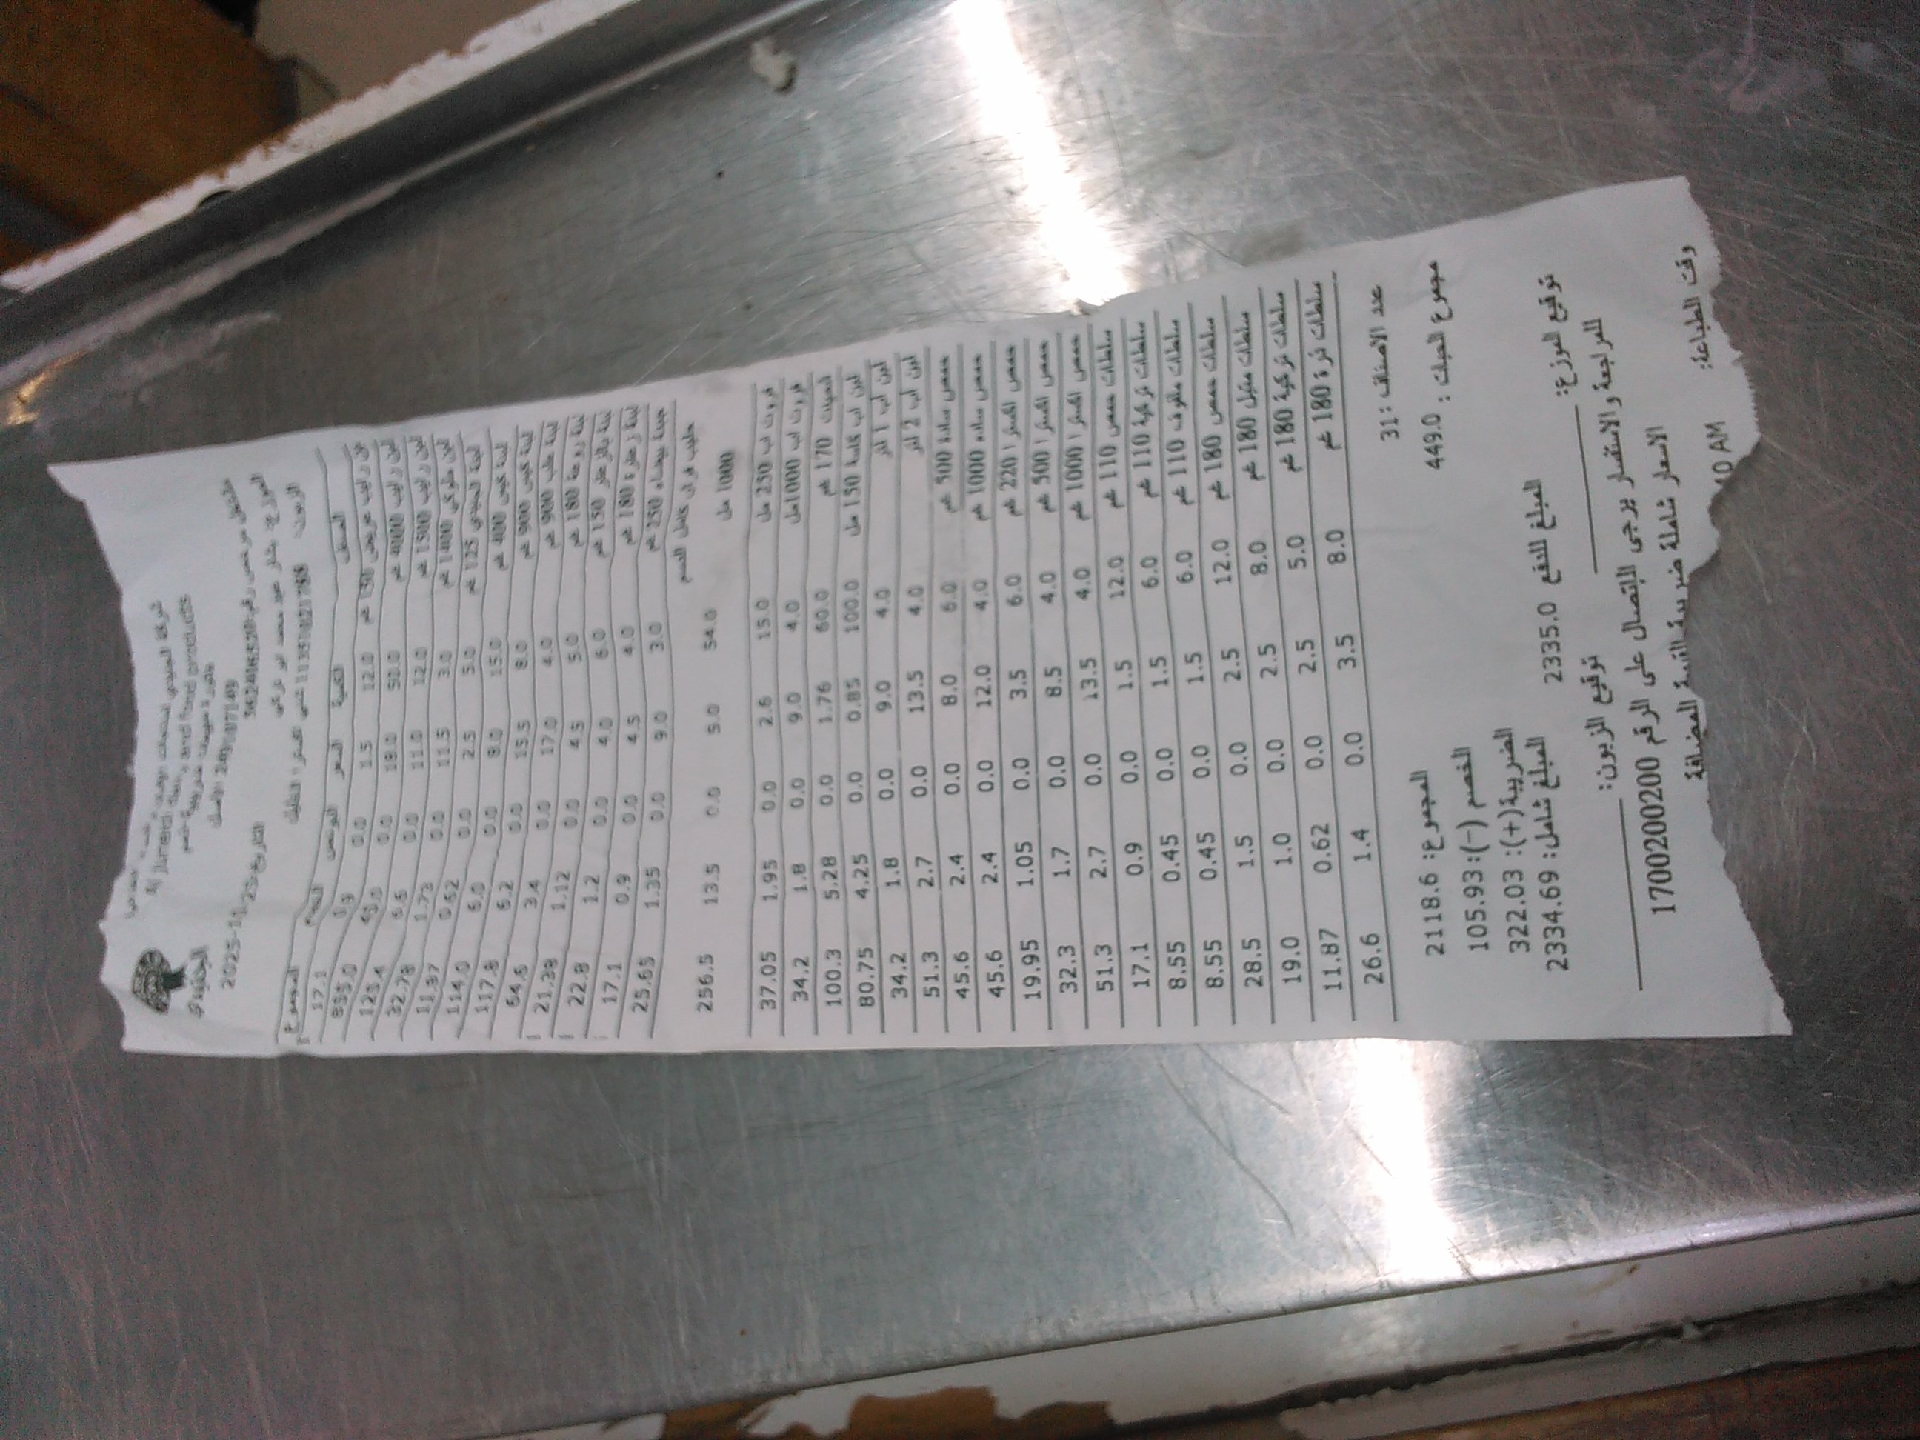 Al Juneidi Dairy and food products
الجنيدي
التاريخ: 2025-11-23
المجموع الخصم البونص السعر الكمية الصنف
17.1 0.9 0.0 1.5 12.0
855.0 45.0 0.0 18.0 50.0 لبن رايب 4000 غم
125.4 6.6 0.0 11.0 12.0 لبن رايب 1500 غم
32.78 1.73 0.0 11.5 3.0 1400 غم
11.87 0.62 0.0 2.5 5.0 لبنة الجنيدي 125 غم
114.0 6.0 0.0 8.0 15.0 لبنة كيس 400 غم
117.8 6.2 0.0 15.5 8.0 لبنة كيس 900 غم
64.6 3.4 0.0 17.0 4.0 لبنة علب 900 غم
21.38 1.12 0.0 4.5 5.0 180 غم
22.8 1.2 0.0 4.0 6.0 لبنة بالزعتر 150 غم
17.1 0.9 0.0 4.5 4.0 180 غم
25.65 1.35 0.0 9.0 3.0 جبنة بيضاء 250 غم
256.5 13.5 0.0 5.0 54.0 حليب كامل الدسم
1000 مل
37.05 1.95 0.0 2.6 15.0 فروت اب 250 مل
34.2 1.8 0.0 9.0 4.0 فروت اب 1000مل
100.3 5.28 0.0 1.76 60.0 170 غم
80.75 4.25 0.0 0.85 100.0 لبن اب كاسة 150 مل
34.2 1.8 0.0 9.0 4.0 لبن اب 1 لتر
51.3 2.7 0.0 13.5 4.0 لبن اب 2 لتر
45.6 2.4 0.0 8.0 6.0 حمص سادة 500 غم
45.6 2.4 0.0 12.0 4.0 حمص سادة 1000 غم
19.95 1.05 0.0 3.5 6.0 حمص اكسترا 220 غم
32.3 1.7 0.0 8.5 4.0 حمص اكسترا 500 غم
51.3 2.7 0.0 13.5 4.0 حمص اكسترا 1000 غم
17.1 0.9 0.0 1.5 12.0 سلطات حمص 110 غم
8.55 0.45 0.0 1.5 6.0 سلطات تركية 110 غم
8.55 0.45 0.0 1.5 6.0 سلطات ملفوف 110 غم
28.5 1.5 0.0 2.5 12.0 سلطات حمص 180 غم
19.0 1.0 0.0 2.5 8.0 سلطات متبل 180 غم
11.87 0.62 0.0 2.5 5.0 سلطات تركية 180 غم
26.6 1.4 0.0 3.5 8.0 سلطات ذرة 180 غم
عدد الاصناف: 31
مجموع الحبات : 449.0
المجموع: 2118.6
الخصم (-): 105.93
الضريبة(+): 322.03
المبلغ شامل: 2334.69
المبلغ للدفع 2335.0
توقيع الموزع: توقيع الزبون:
للمراجعة والاستفسار يرجى الاتصال على الرقم 1700200200
الاسعار شاملة ضريبة القيمة المضافة
وقت الطباعة:
10 AM